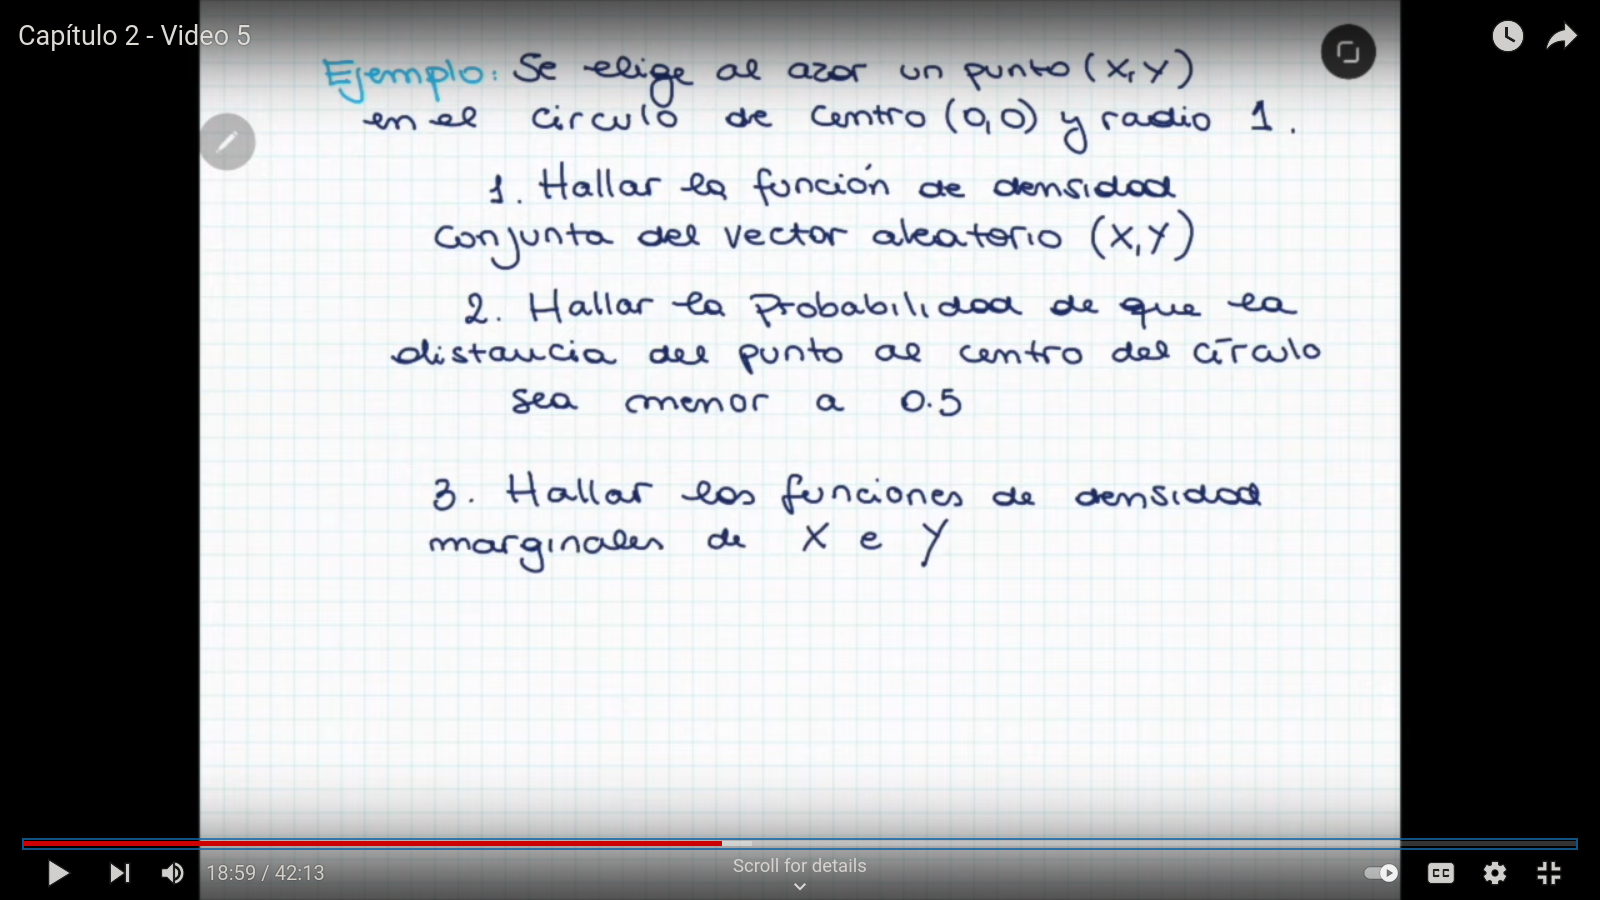 Capítulo 2 - Video 5
Ejemplo: Se elige al azar un punto (X, Y)
en el circulo de centro (0,0) y radio 1.
1. Hallar la función de densidad
conjunta del vector aleatorio (X,Y)
2. Hallar la Probabilidad de que la
distancia del punto al centro del círculo
sea menor a 0.5
3. Hallar las funciones de densidad
marginales de X e Y
18:59 / 42:13
Scroll for details
CC